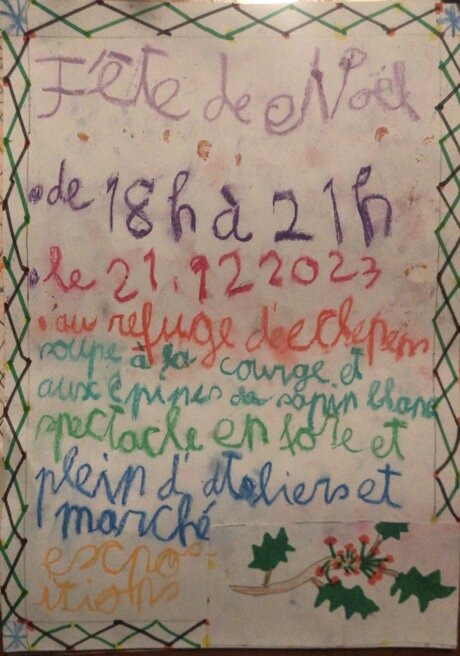 Fête de Noël
• de 18h à 21h
• le 21.12 2023
• au refuge d'echepens
soupe à la courge et
aux épines de sapin blanc
spectacle en fore et
plein d'ateliers et
marché
expos-
itions